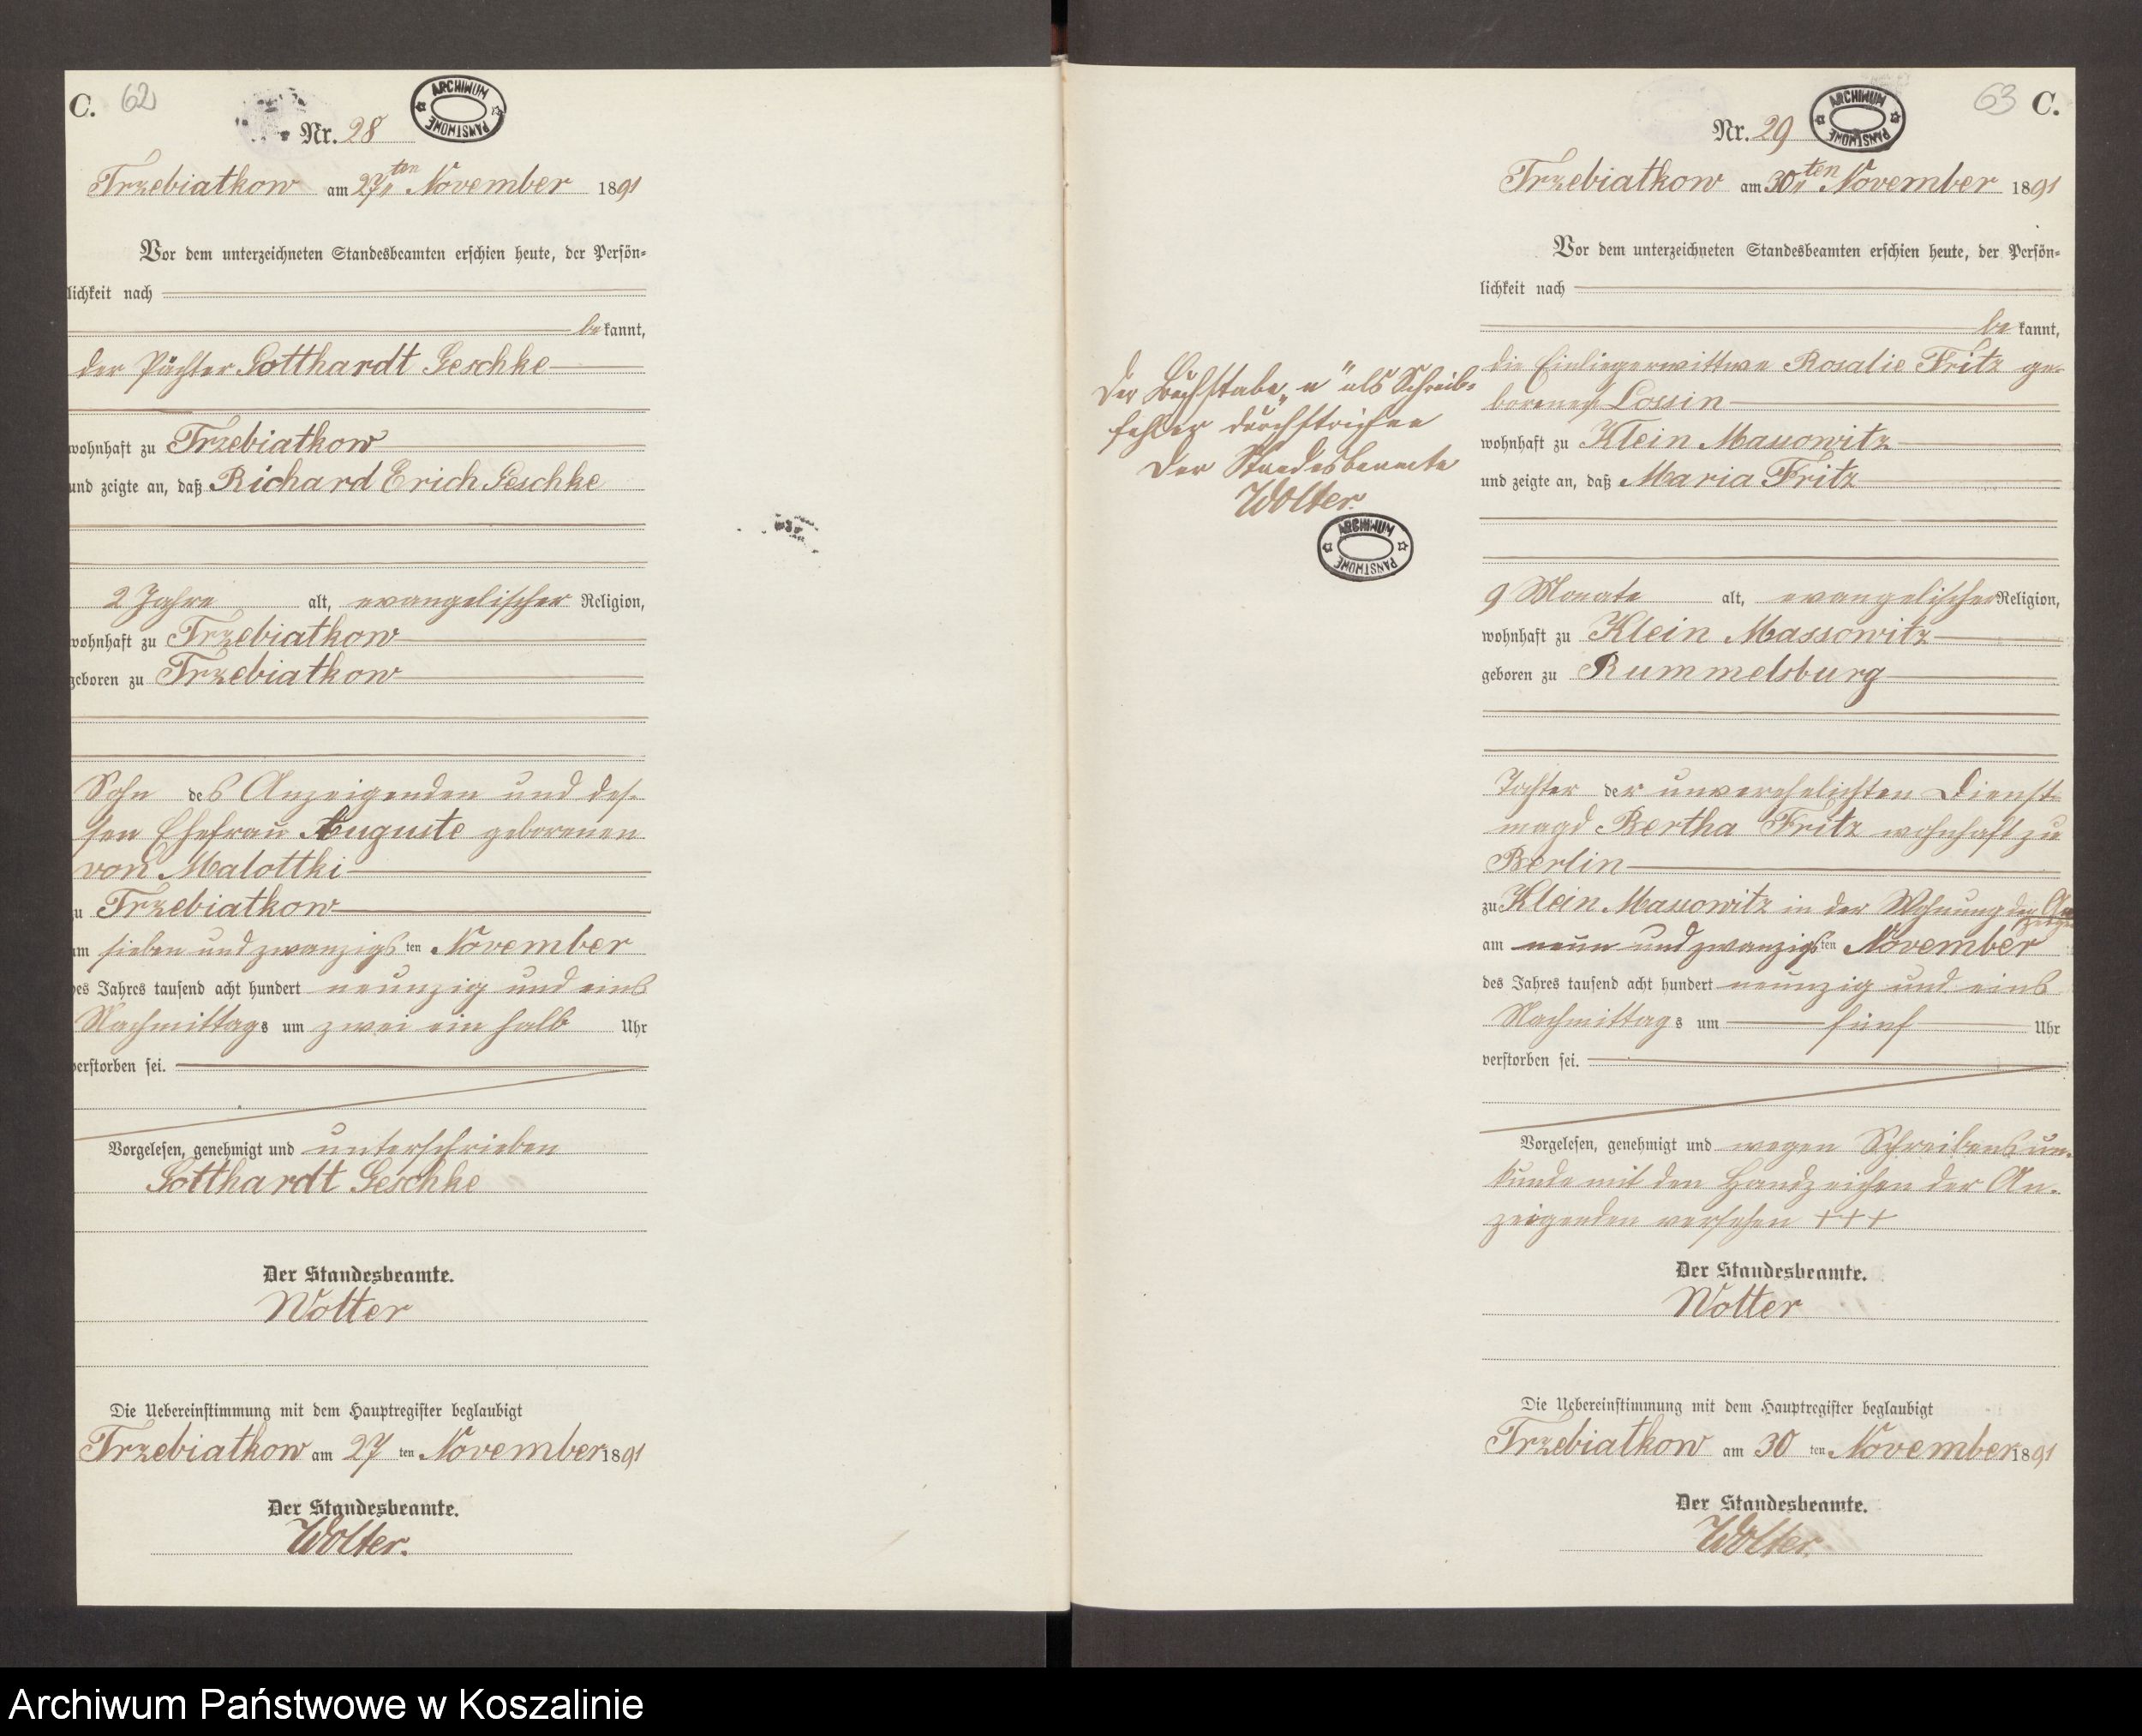 C. 62
ARCHIWUM PAŃSTWOWE
Nr. 28
Trzebiatkow am 27ten November 1891
Vor dem unterzeichneten Standesbeamten erschien heute, der Persön-
lichkeit nach
bekannt,
der Pächter Gotthardt Geschke
wohnhaft zu Trzebiatkow
und zeigte an, daß Richard Erich Geschke
2 Jahre alt, evangelischer Religion,
wohnhaft zu Trzebiatkow
geboren zu Trzebiatkow
Sohn des Anzeigenden und des-
sen Ehefrau Auguste geborenen
von Malottki
zu Trzebiatkow
am sieben und zwanzigsten November
des Jahres tausend acht hundert neunzig und eins
Nachmittags um zwei ein halb Uhr
verstorben sei.
Vorgelesen, genehmigt und unterschrieben
Gotthardt Geschke
Der Standesbeamte.
Wolter
Die Uebereinstimmung mit dem Hauptregister beglaubigt
Trzebiatkow am 27 ten November 1891
Der Standesbeamte.
Wolter.
63 C.
ARCHIWUM PAŃSTWOWE
Nr. 29
Trzebiatkow am 30ten November 1891
Vor dem unterzeichneten Standesbeamten erschien heute, der Persön-
lichkeit nach
bekannt,
die Einliegerwittwe Rosalie Fritz ge-
borene Lossin
wohnhaft zu Klein Massowitz
und zeigte an, daß Maria Fritz
9 Monate alt, evangelischer Religion,
wohnhaft zu Klein Massowitz
geboren zu Rummelsburg
Tochter der unverehelichten Dienst-
magd Bertha Fritz wohnhaft zu
Berlin
zu Klein Massowitz in der Wohnung der
am neun und zwanzigsten November
des Jahres tausend acht hundert neunzig und eins
Nachmittags um fünf Uhr
verstorben sei.
Vorgelesen, genehmigt und wegen Schreibensun-
kunde mit den Handzeichen der An-
zeigenden versehen +++
Der Standesbeamte.
Wolter
Die Uebereinstimmung mit dem Hauptregister beglaubigt
Trzebiatkow am 30 ten November 1891
Der Standesbeamte.
Wolter.
Der Buchstabe „n" als Schreib-
fehler durchstrichen
Der Standesbeamte
Wolter.
ARCHIWUM PAŃSTWOWE
Archiwum Państwowe w Koszalinie